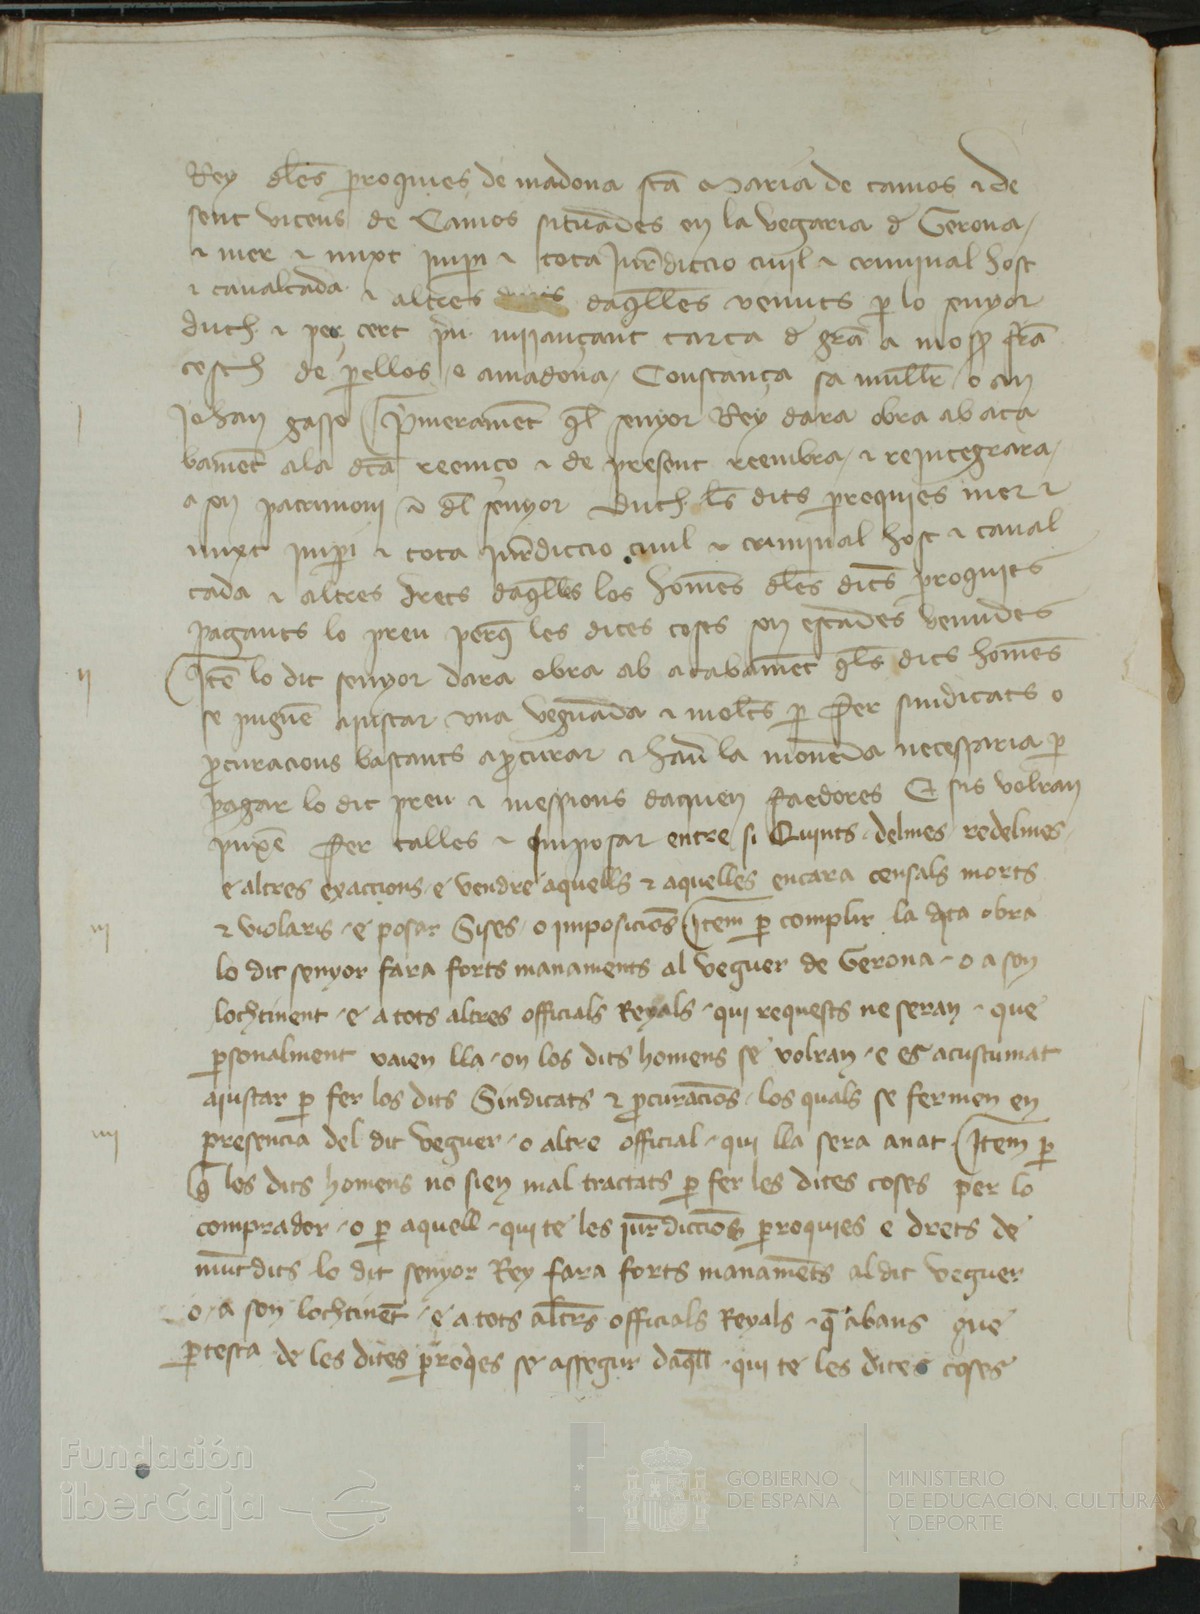 Rey dles proquies de madona sca Maria de camos & de
sent vicens de Camos situades en la vegaria d Gerona
& mer & mixt imperi & tota jurdiccio civil & criminal host
& cavalcada & altres drets daqlles venuts p lo senyor
duch & per cert preu mijançant carta d gra a mossen fra
cesch de perellos o amadona Constança sa muller o an
Johan gasso Primerament ql senyor Rey dara obra ab aca
bament ala dca reemço & de present reembra & reintegrara
a son patrimoni & dl senyor duch ls dits parroquies mer &
mixt imperi & tota jurdiccio civil & criminal host & caval
cada & altres drets daqlls los homens dles dits proquies
pagants lo preu perq les dites coses son estades venudes
ij Ite lo dit senyor dara obra ab acabament qls dits homens
se pugue ajustar una veguada & moltes p fer sindicats o
procuracions bastants a procurar & hauer la moneda necessaria p
pagar lo dit preu & messions daquen faedores E sis volran
puxe fer talles & imposar entre si Quints delmes redelmes
e altres exaccions e vendre aquells & aquelles encara censals morts
iij & violaris e posar Sises o imposicions Item p complir la dita obra
lo dit senyor fara forts manaments al veguer de Gerona o a son
lochtinent e a tots altres officials Reyals qui requests ne seran que
personalment vaien lla on los dits homens se volran e es acustumat
ajustar p fer los dits Sindicats & procuracions los quals se fermen en
iiij presencia del dit veguer o altre official qui lla sera anat Item p
q los dits homens no sien mal tractats p fer les dites coses per lo
comprador o p aquell qui te les jurdiccions parroquies e drets de
munt dits lo dit senyor Rey fara forts manaments al dit veguer
o a son lochtinet e a tots altres officials Reyals q abans que
p testa de les dites parroqes se assegur daqll qui te les dites coses
Fundación
iberCaja
GOBIERNO
DE ESPAÑA
MINISTERIO
DE EDUCACIÓN, CULTURA
Y DEPORTE